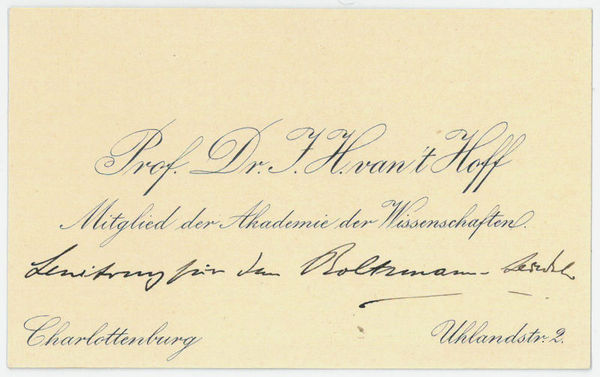 Prof. Dr. J. H. van't Hoff
Mitglied der Akademie der Wissenschaften.
für den Boltzmann-
Charlottenburg
Uhlandstr. 2.